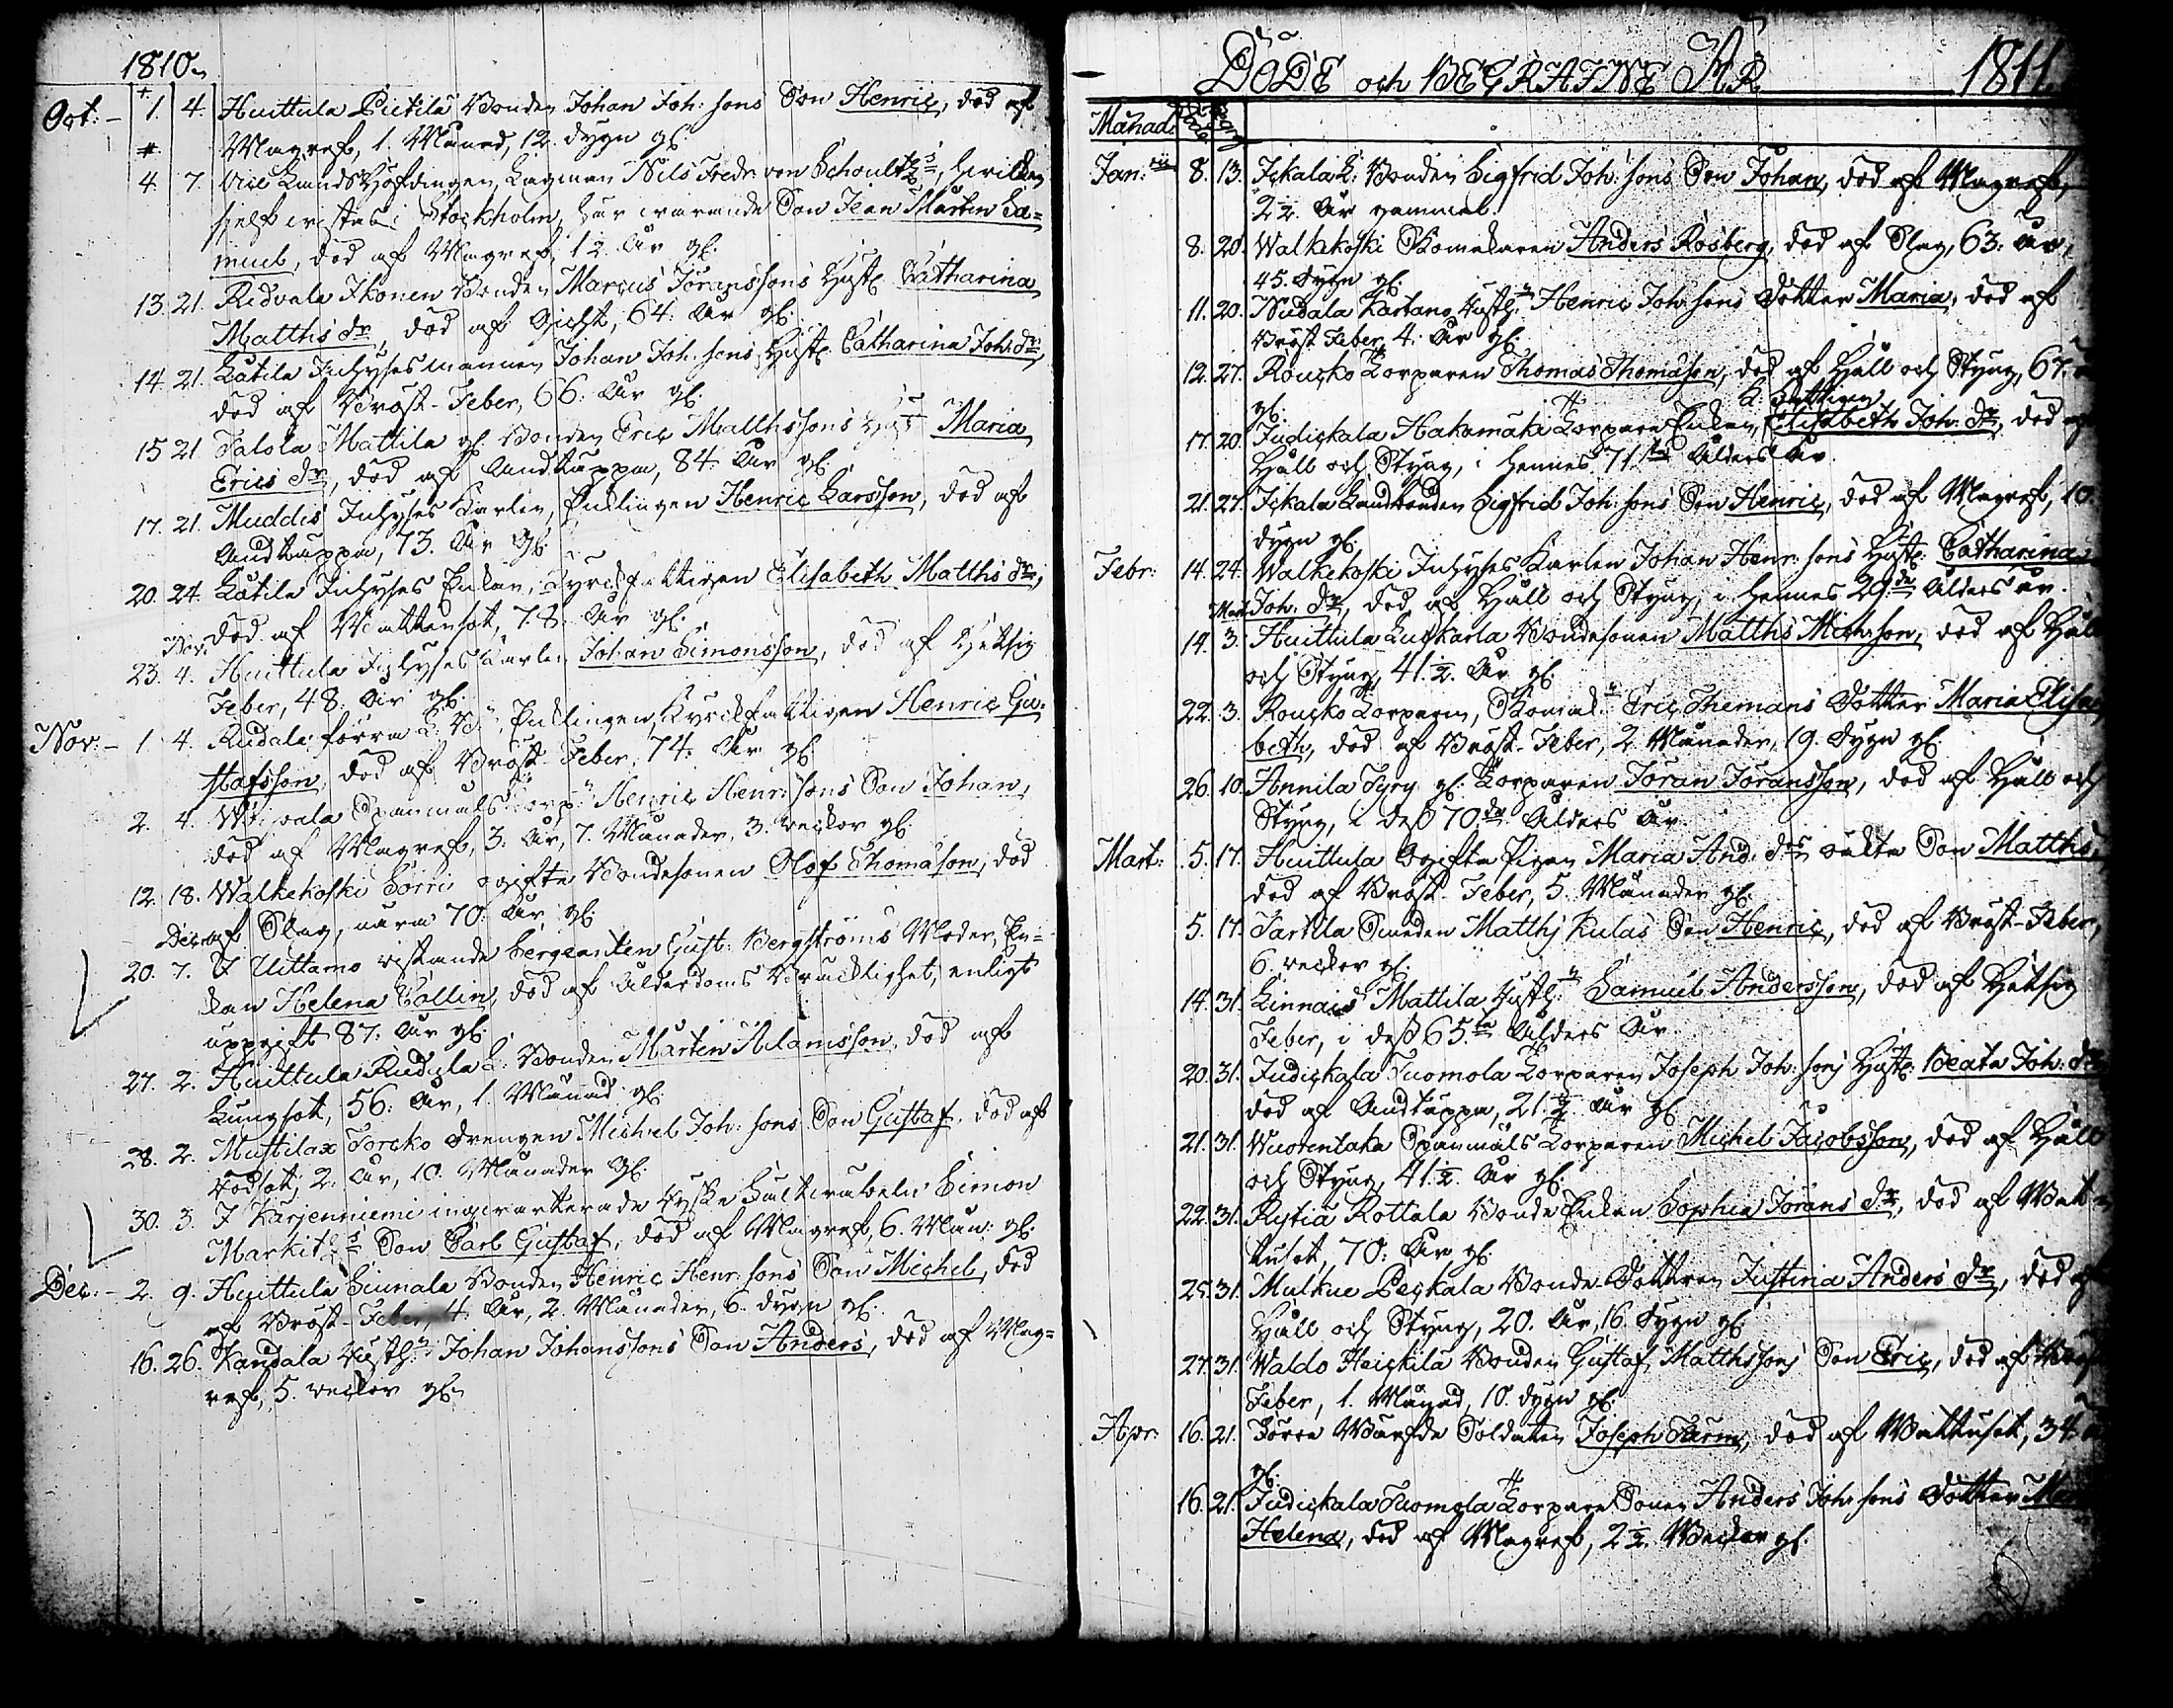 1810.
Oct: - 1. 4. Huittula Pietilä Bonden Johan Joh: sons Son Henric, död af
Magref, 1. Månad, 12. dygn gl:
4. 7. Vice Landshöfdingen, Lagman Nils Fredr: von Schoultz's, hvilken
sjelf vistas i Stockholm, här varande Son Jean Martin Sa=
muel, död af Magref, 1 1/2 år gl:
13. 21. Ridvala Ikonen Bonden Marcus Jöranssons Hust: Catharina
Matths dr, död af Gicht, 64. år gl:
14. 21. Lätilä Inhysesmannen Johan Joh: sons Hust: Catharina Joh: dr,
död af Bröst-Feber, 66. år gl:
15. 21. Talola Mattila gl: Bonden Eric Matthssons Hust: Maria
Erics dr, död af Andtäppa, 84. år gl:
17. 21. Muddis Inhyses Karlen, Enklingen Henric Larsson, död af
Andtäppa, 73. år gl:
20. 24. Lätilä Inhyses Enkan, Kyrckfattigen Elisabeth Matths dr,
död af Vattensot, 78. år gl:
Nov:
23. 4. Huittula Inhyses Karlen Johan Simonsson, död af Hetsig
Feber, 48. år gl:
Nov: - 1. 4. Rudala förra L: B:n, Enklingen, Kyrckfattigen Henric Gu=
stafsson, död af Bröst-Feber, 74. år gl:
2. 4. vala Spanmåls Torp:n Henric Henr: sons Son Johan,
död af Magref, 3. år, 7. Månader, 3. veckor gl:
12. 18. Walkekoski Sorri ogifte Bondesonen Olof Thomasson, död
af Slag, nära 70. år gl:
Decr:
20. 7. I Uittamo vistande Sergeanten Gust: Bergströms Moder, En=
kan Helena Collin, död af Ålderdoms Bräcklighet, enligt
uppgift 87. år gl:
27. 2. Huittula Rudula L: Bonden Mårten Adamsson, död af
Lungsot, 56. år, 1. Månad gl:
28. 2. Mustilax Torcko Drengen Michel Joh: sons Son Gustaf, död af
Rodsot, 2. år, 10. Månader gl:
30. 3. I Karjenniemi inqvarterade Tyske Simon
Son Carl Gustaf, död af Magref, 6. Mån: gl:
Dec: - 2. 9. Huittula Siunala Bonden Henric Henr: sons Son Michel, död
af Bröst-Feber, 4. år, 2. Månader, 6. dygn gl:
16. 26. Kandala Johan Johanssons Son Anders, död af Mag=
ref, 5. veckor gl:
DÖDE och BEGRAFNE ÅR 1811.
Månad.
Jan:rii 8. 13. Ickala L: Bonden Sigfrid Joh: sons Son Johan, död af Magref,
2 1/2. år gammal.
8. 20. Walkekoski Skomakaren Anders Rosberg, död af Slag, 63. år,
45. dygn gl:
11. 20. Nudala Kartano Henric Joh: sons Dotter Maria, död af
Bröst Feber, 4. år gl:
12. 27. Roucko Torparen Thomas Thomasson, död af Håll och Styng, 67. år
gl:
17. 20. Judickala Hakamäki Torpare Enkan, Elisabeth Joh: dr, död af
Håll och Styng, i hennes 71sta Ålders år.
21. 27. Ickala Landbonden Sigfrid Joh: sons Son Henric, död af Magref, 10.
dygn gl:
Febr: 14. 24. Walkekoski Inhyses Karlen Johan Henr: sons Hust: Catharina
Joh: dr, död af Håll och Styng, i hennes 29:de Ålders år.
Mart:
14. 3. Huittula Luckarla Bondesonen Matths Mich: son, död af Håll
och Styng, 41 1/2. år gl:
22. 3. Roucko Torparen, Skomak:n Eric Themans Dotter Maria Elisa
beth, död af Bröst-Feber, 2. Månader, 19. dygn gl:
26. 10. Annila Tyry gl: Torparen Jöran Jöransson, död af Håll och
Styng, i dess 70:de Ålders år.
Mart: 5. 17. Huittula Ogifta Pigan Maria And: drs oäkta Son Matths,
död af Bröst-Feber, 5. Månader gl:
5. 17. Tarttila Smeden Matths Kulas Son Henric, död af Bröst-Feber,
6. veckor gl:
14. 31. Linnais Mattila Samuel Andersson, död af Hetsig
Feber, i dess 65:te Ålders år.
20. 31. Judickala Tuomola Torparen Joseph Joh: sons Hust: Beata Joh: dr
död af Andtäppa, 21 1/2. år gl:
21. 31. Wuorentaka Spanmåls Torparen Michel Jacobsson, död af Håll
och Styng, 41 1/2. år gl:
22. 31. Rytiä Rottala Bonde Enkan Sophia Jörans dr, död af Wat
tusot, 70. år gl:
25. 31. Mulkue Peckala Bonde-Dottren Justina Anders dr, död af
Håll och Styng, 20. år, 16. dygn gl:
27. 31. Waldo Heickilä Bonden Gustaf Matthssons Son Eric, död af Bröst
Feber, 1. Månad, 10. dygn gl:
Apr: 16. 21. Förre Soldaten Joseph Farm, död af Wattusot, 34. år
gl:
16. 21. Judickala Tuomola Torpare Sonen Anders Joh: sons Dotter
Helena, död af Magref, 2 1/2. Weckor gl: